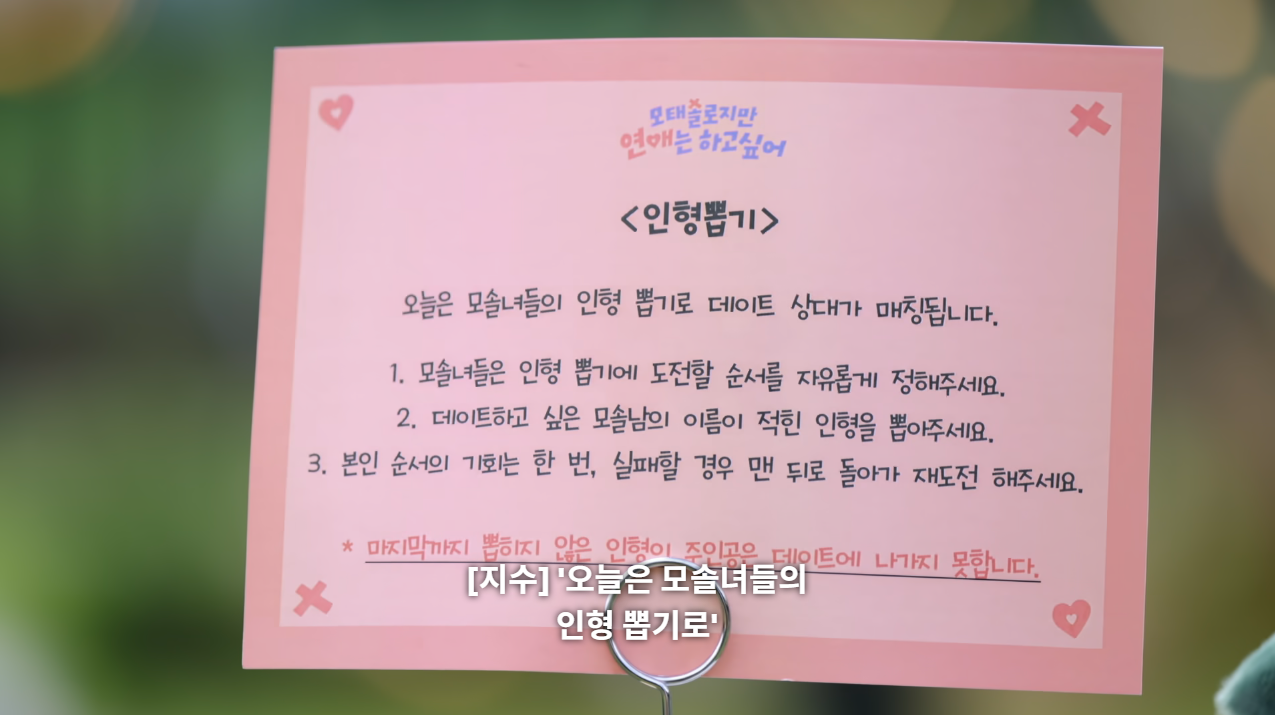 모태솔로지만
연애는 하고싶어
<인형뽑기>
오늘은 모솔녀들의 인형 뽑기로 데이트 상대가 매칭됩니다.
1. 모솔녀들은 인형 뽑기에 도전할 순서를 자유롭게 정해주세요.
2. 데이트하고 싶은 모솔남의 이름이 적힌 인형을 뽑아주세요.
3. 본인 순서의 기회는 한 번, 실패할 경우 맨 뒤로 돌아가 재도전 해주세요.
* 마지막까지 뽑히지 않은 인형의 주인공은 데이트에 나가지 못합니다.
[지수] '오늘은 모솔녀들의
인형 뽑기로'